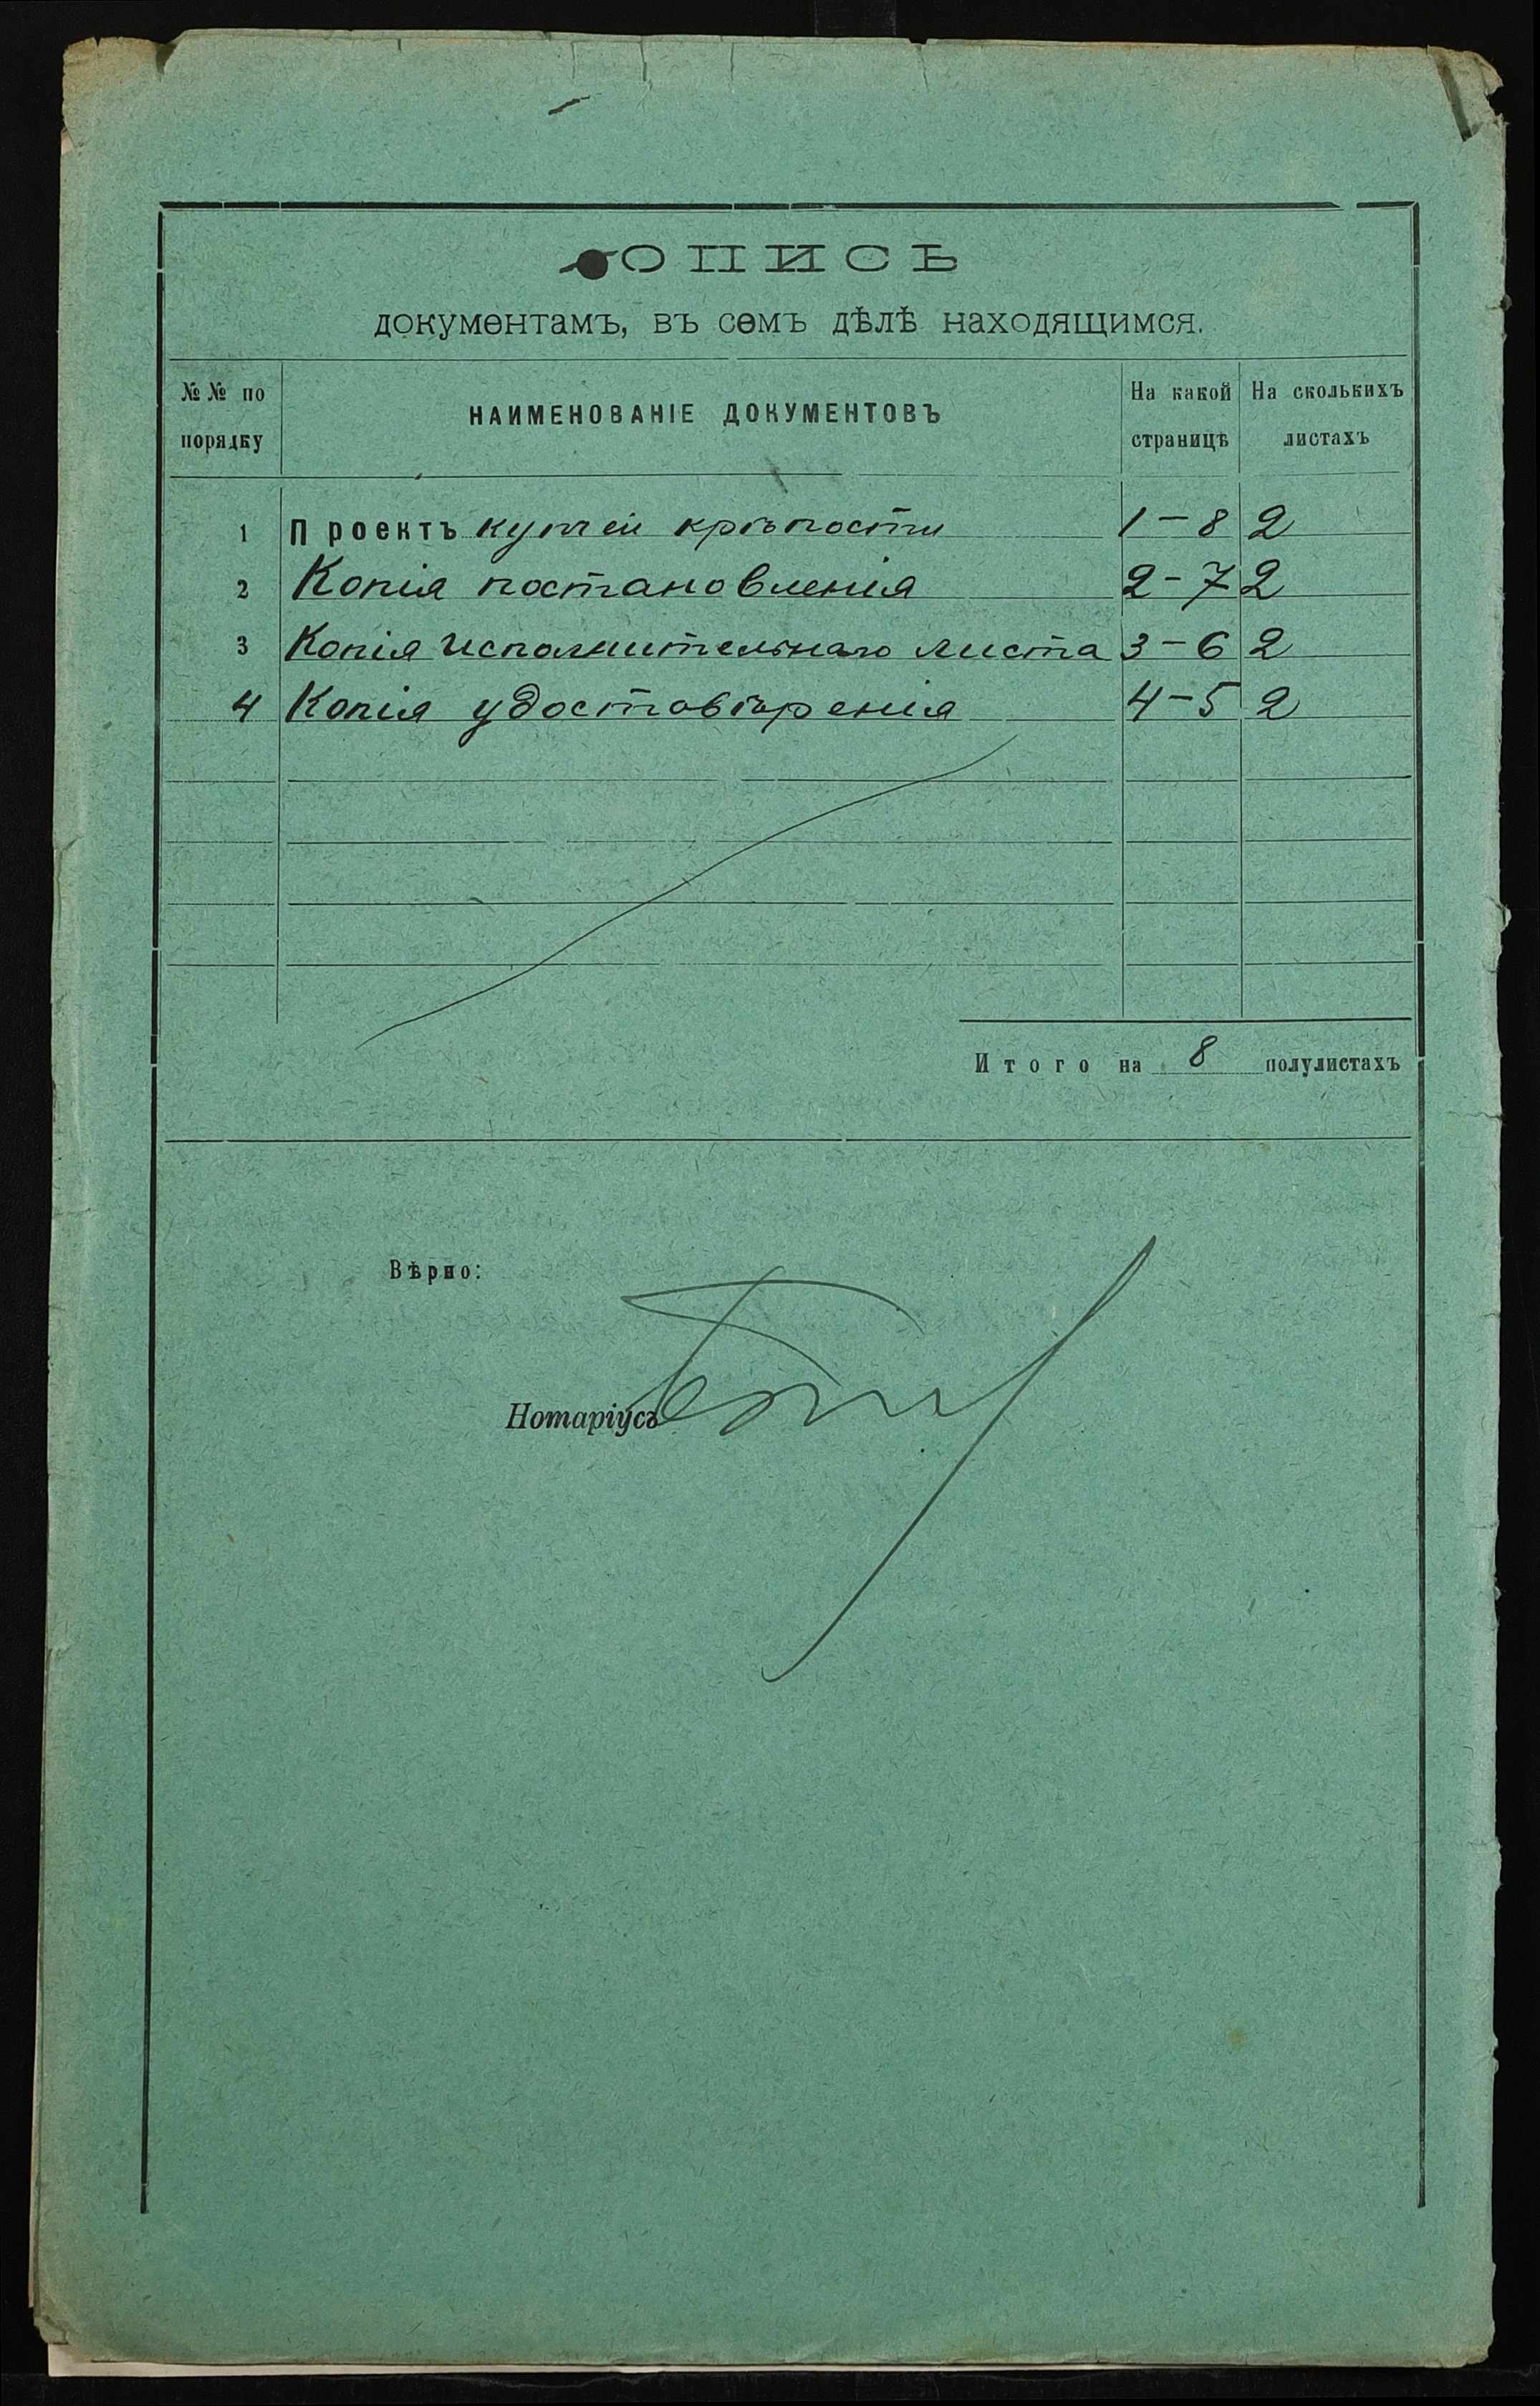 ОПИСЬ
документамъ, въ семъ дѣлѣ находящимся.
№№ по порядку
НАИМЕНОВАНІЕ ДОКУМЕНТОВЪ
На какой страницѣ
На сколькихъ листахъ
1 Проектъ купчей крѣпости 1-8 2
2 Копія постановленія 2-7 2
3 Копія исполнительнаго листа 3-6 2
4 Копія удостовѣренія 4-5 2
Итого на 8 полулистахъ
Вѣрно:
Нотаріусъ